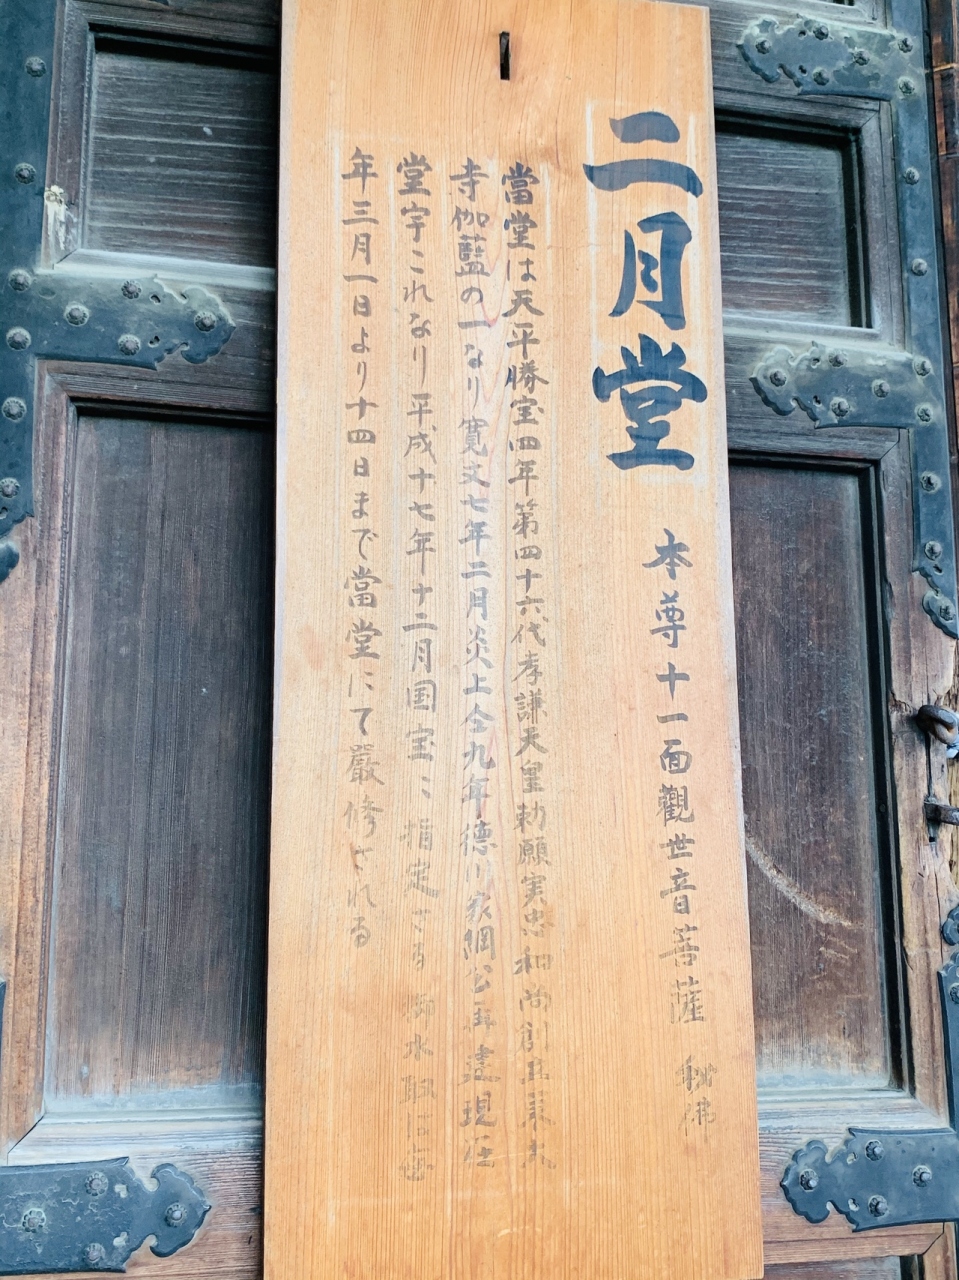 二月堂
本尊十一面觀世音菩薩 秘佛
當堂は天平勝宝四年第四十六代孝謙天皇勅願実忠和尚創立東大
寺伽藍の一なり寛文七年二月炎上仝九年德川家綱公再建現在
堂宇これなり平成十七年十二月国宝に指定さる御水取は每
年三月一日より十四日まで當堂にて嚴修される